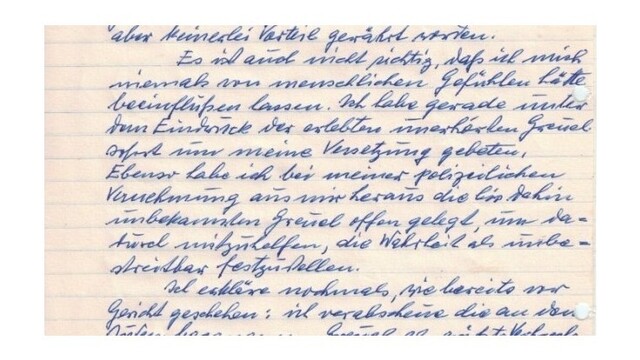 aber keinerlei Vorteil gewährt worden.
Es ist auch nicht richtig, daß ich mich
niemals von menschlichen Gefühlen hätte
beeinflußen lassen. Ich habe gerade unter
dem Eindruck der erlebten unerhörten Greuel
sofort um meine Versetzung gebeten.
Ebenso habe ich bei meiner polizeilichen
Vernehmung aus mir heraus die bis dahin
unbekannten Greuel offen gelegt, um da-
durch mitzuhelfen, die Wahrheit als unbe-
streitbar festzustellen.
Ich erkläre nochmals, wie bereits vor
Gericht geschehen: ich verabscheue die an den
Juden Greuel